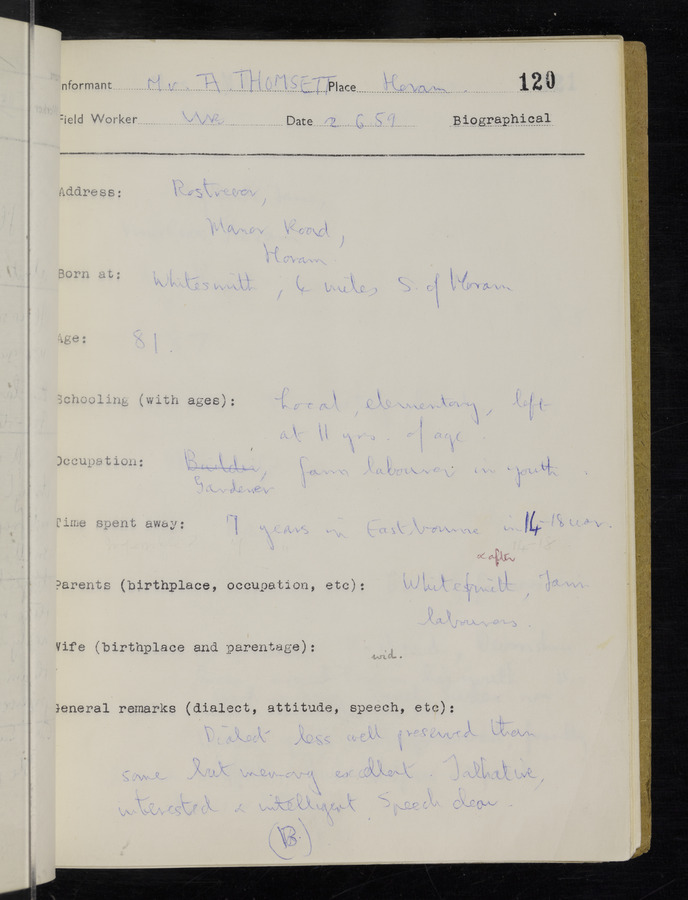 Informant Mr. A. THOMSETT Place Horam. 120
Field Worker Date 2 6 59 Biographical
Address: Rostrevor,
Manor Road,
Horam
Born at: Whitesmith, 4 miles S. of Horam
Age: 81.
Schooling (with ages): Local, elementary, left
at 11 yrs. of age.
Occupation: Builder, farm labourer in youth.
Gardener
Time spent away: 7 years in Eastbourne in 14-18 war.
& after
Parents (birthplace, occupation, etc): Whitesmith, Farm
labourers.
Wife (birthplace and parentage): wid.
General remarks (dialect, attitude, speech, etc):
Dialect less well preserved than
some but memory excellent. Talkative,
interested & intelligent. Speech clear.
(B)